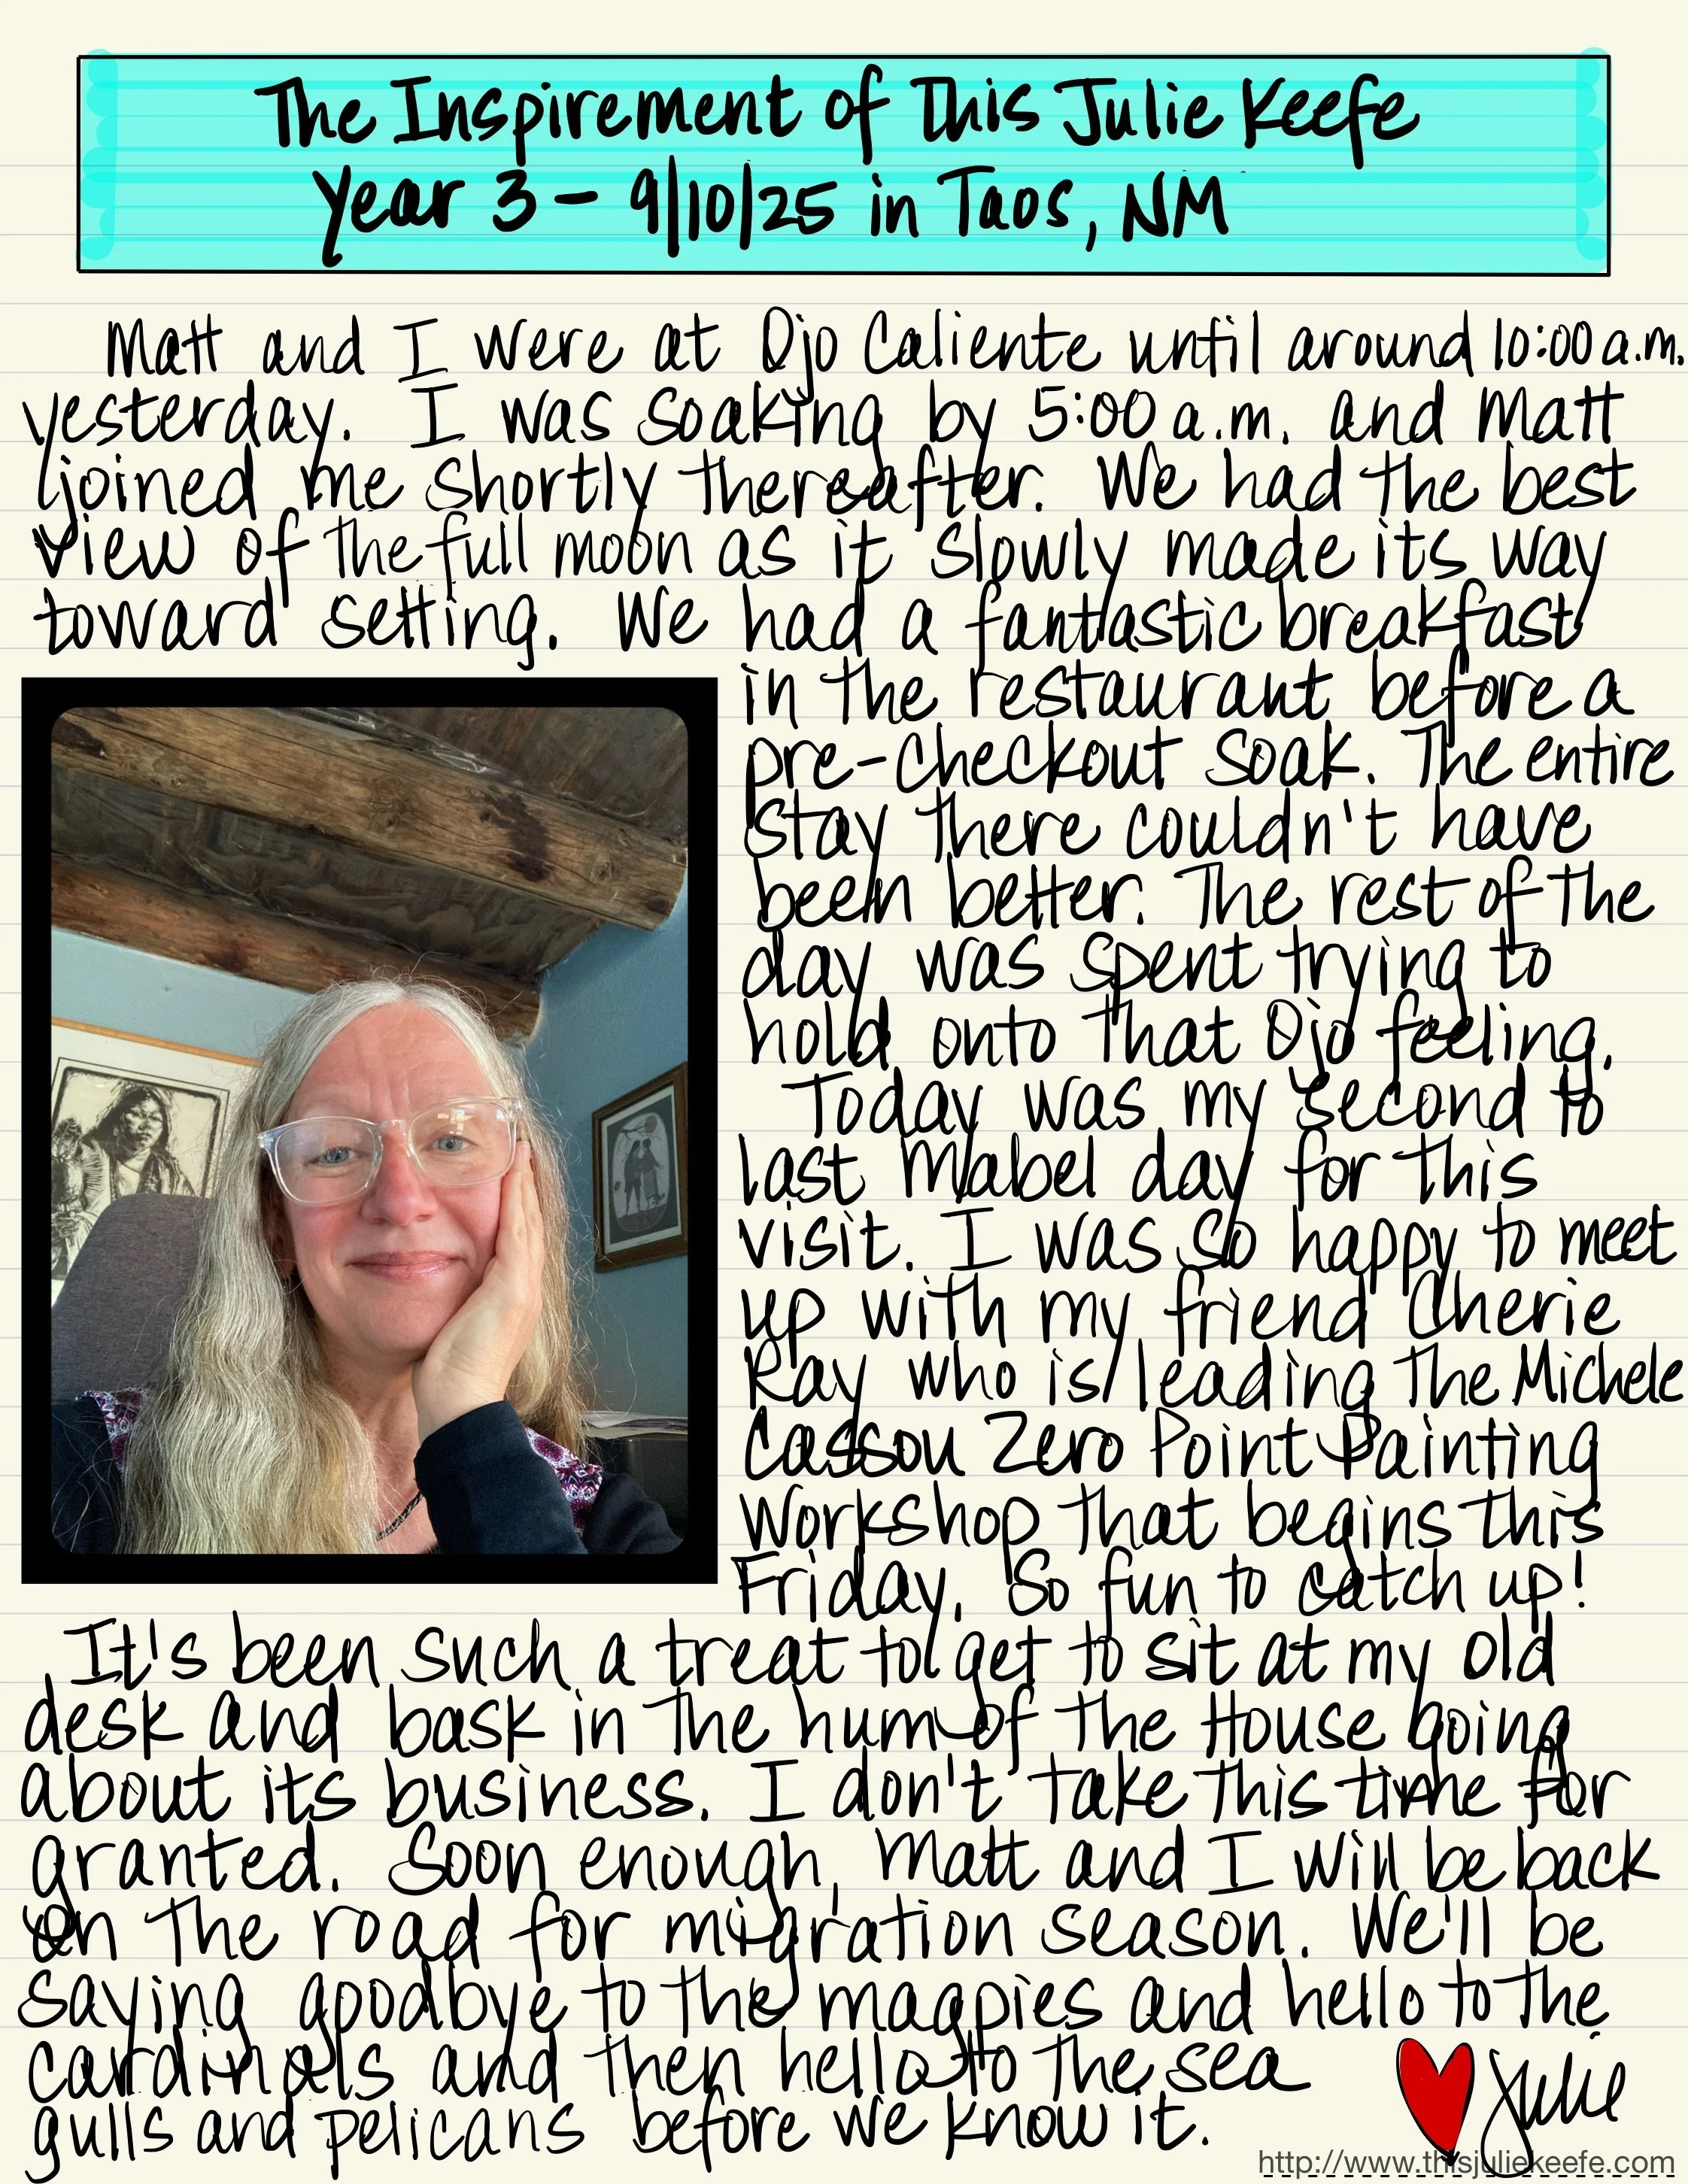 The Inspirement of This Julie Keefe
Year 3 - 9/10/25 in Taos, NM
Matt and I were at Ojo Caliente until around 10:00 a.m.
yesterday. I was soaking by 5:00 a.m. and Matt
joined me shortly thereafter. We had the best
view of the full moon as it slowly made its way
toward setting. We had a fantastic breakfast
in the restaurant before a
pre-checkout soak. The entire
stay there couldn't have
been better. The rest of the
day was spent trying to
hold onto that Ojo feeling.
Today was my second to
last Mabel day for this
visit. I was so happy to meet
up with my friend Cherie
Ray who is leading the Michele
Cassou Zero Point Painting
Workshop that begins this
Friday. So fun to catch up!
It's been such a treat to get to sit at my old
desk and bask in the hum of the House going
about its business. I don't take this time for
granted. Soon enough, Matt and I will be back
on the road for migration season. We'll be
saying goodbye to the magpies and hello to the
cardinals and then hello to the sea
gulls and pelicans before we know it.
Julie
http://www.thisjuliekeefe.com